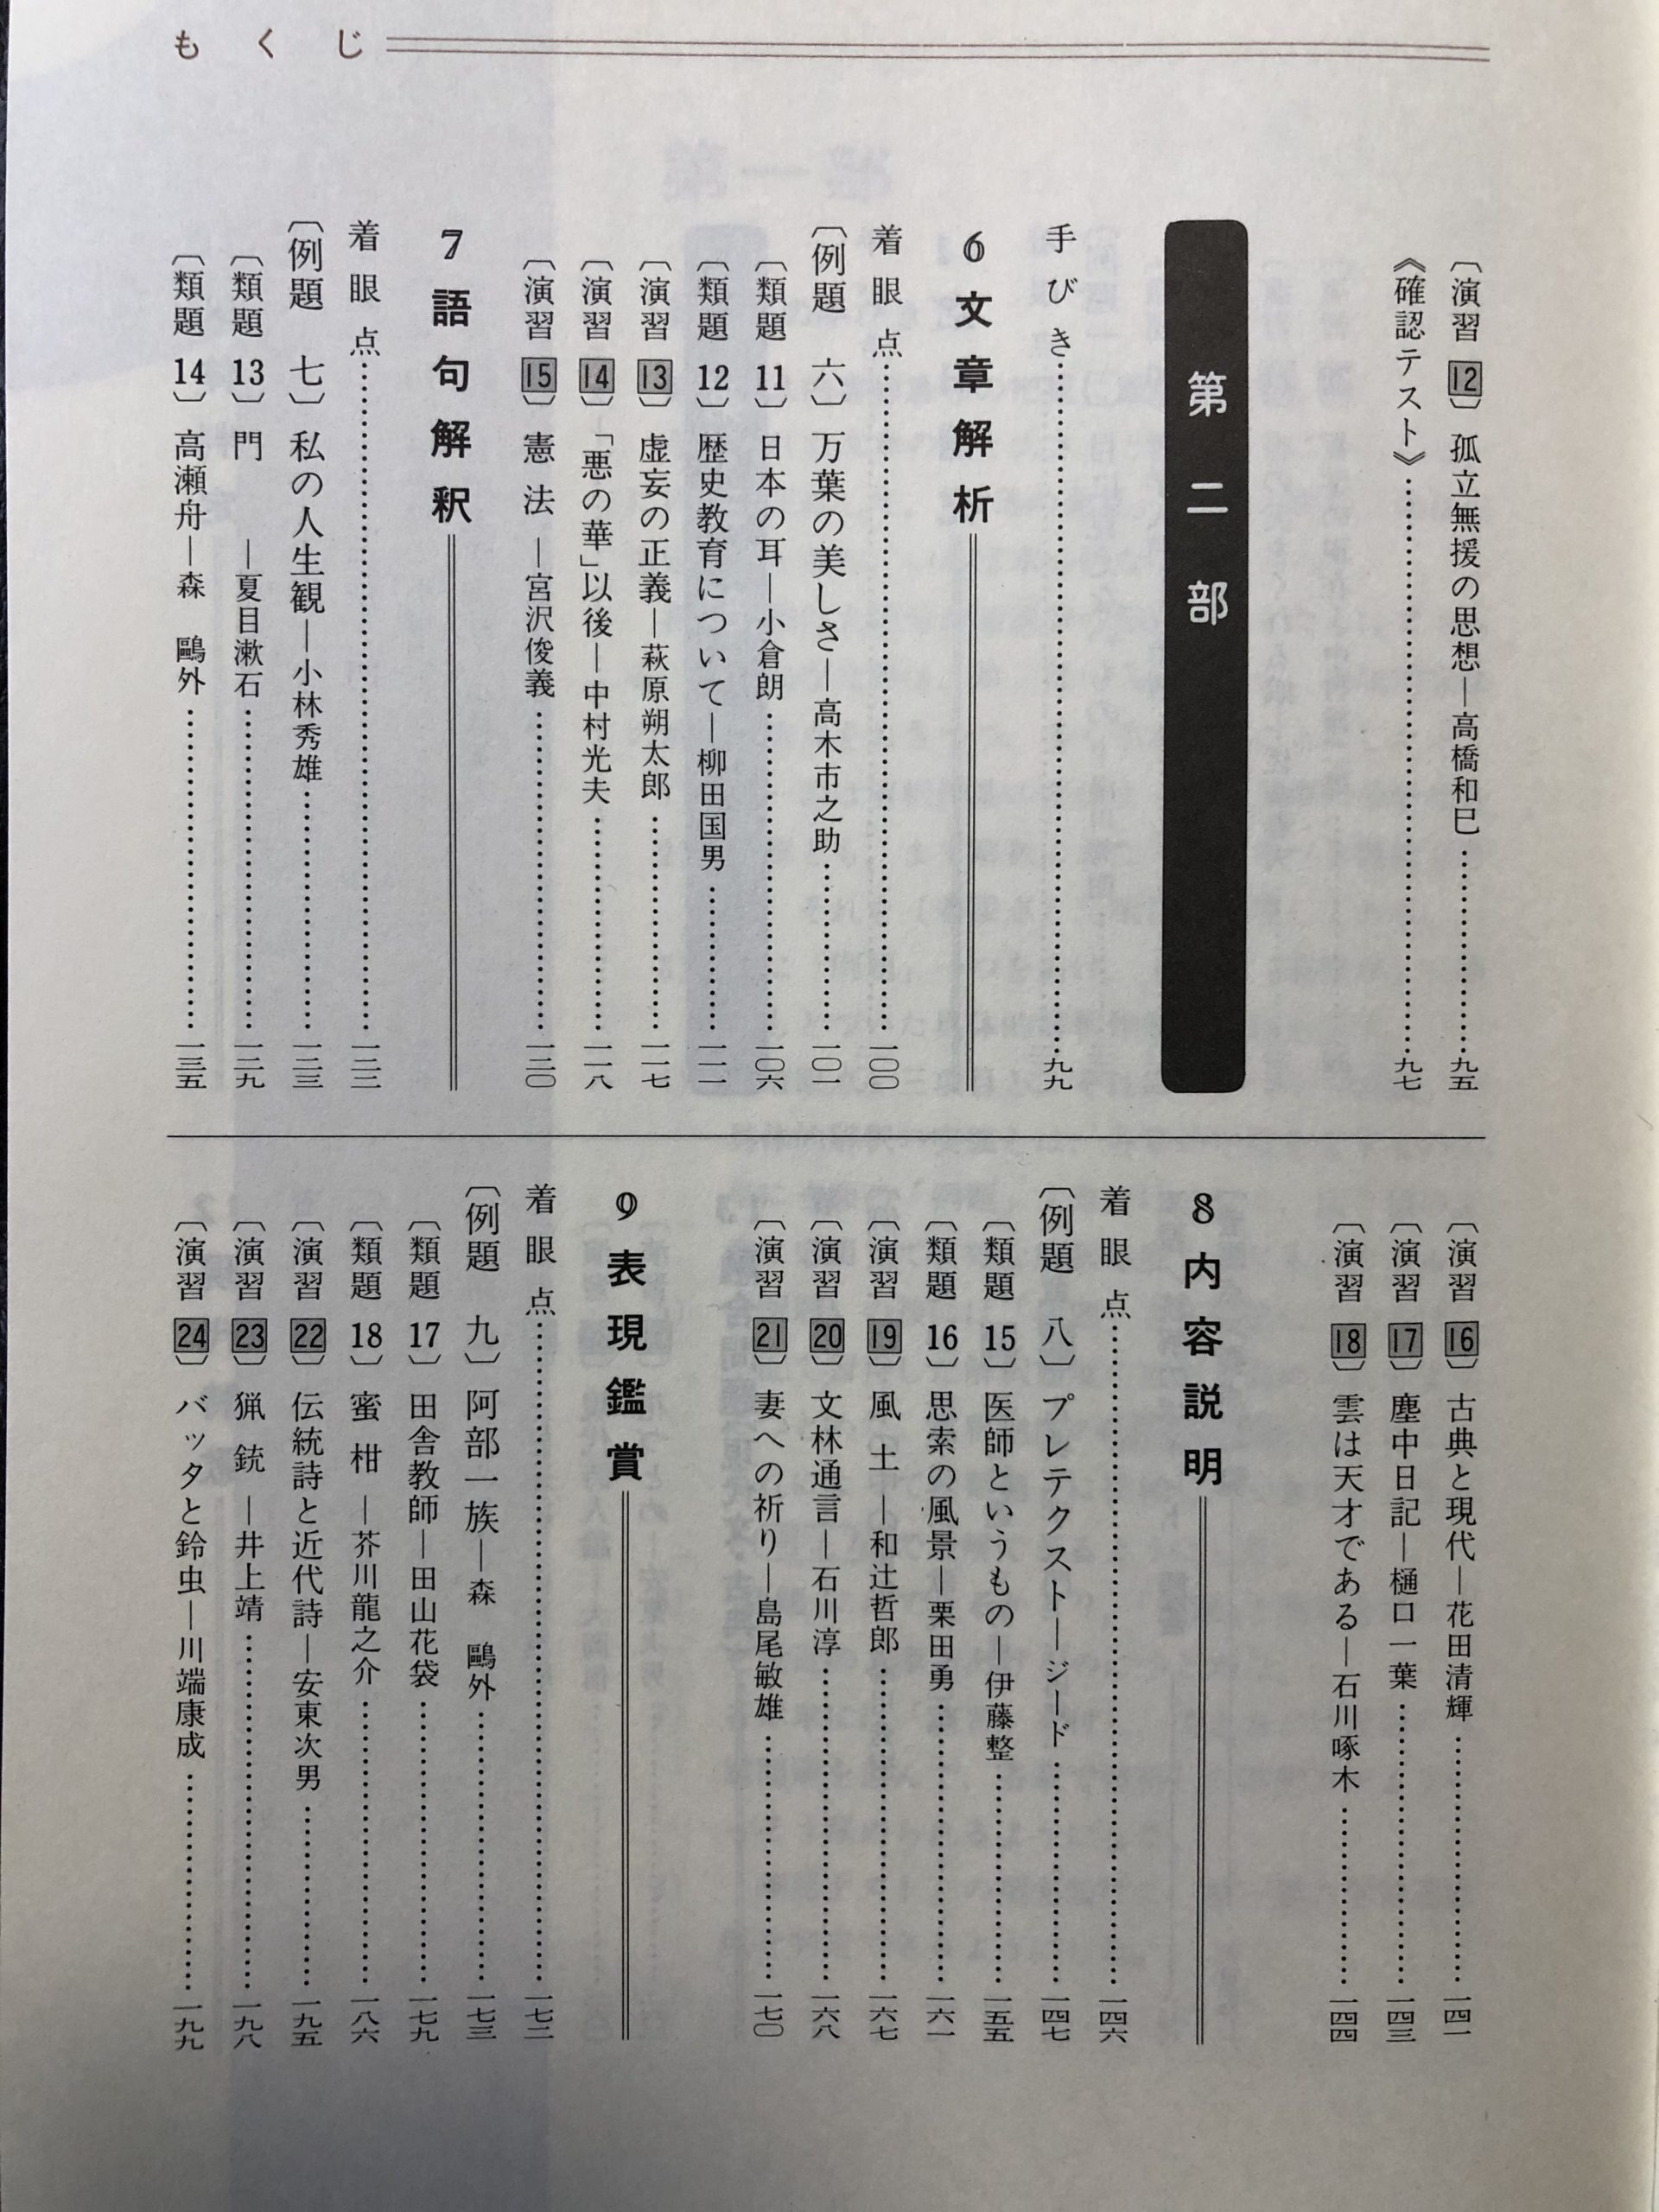 もくじ
〔演習12〕 孤立無援の思想―高橋和巳……九五
《確認テスト》……九七
第二部
手びき……九九
6 文章解析
着眼点……一〇〇
〔例題 六〕 万葉の美しさ―高木市之助……一〇一
〔類題11〕 日本の耳―小倉朗……一〇六
〔類題12〕 歴史教育について―柳田国男……一一一
〔演習13〕 虚妄の正義―萩原朔太郎……一一七
〔演習14〕 「悪の華」以後―中村光夫……一一八
〔演習15〕 憲法―宮沢俊義……一二〇
7 語句解釈
着眼点……一二二
〔例題 七〕 私の人生観―小林秀雄……一二三
〔類題13〕 門―夏目漱石……一二九
〔類題14〕 高瀬舟―森 鷗外……一三五
〔演習16〕 古典と現代―花田清輝……一四一
〔演習17〕 塵中日記―樋口一葉……一四三
〔演習18〕 雲は天才である―石川啄木……一四四
8 内容説明
着眼点……一四六
〔例題 八〕 プレテクスト―ジード……一四七
〔類題15〕 医師というもの―伊藤整……一五五
〔類題16〕 思索の風景―栗田勇……一六一
〔演習19〕 風土―和辻哲郎……一六七
〔演習20〕 文林通言―石川淳……一六八
〔演習21〕 妻への祈り―島尾敏雄……一七〇
9 表現鑑賞
着眼点……一七二
〔例題 九〕 阿部一族―森 鷗外……一七三
〔類題17〕 田舎教師―田山花袋……一七九
〔類題18〕 蜜柑―芥川龍之介……一八六
〔演習22〕 伝統詩と近代詩―安東次男……一九五
〔演習23〕 猟銃―井上靖……一九八
〔演習24〕 バッタと鈴虫―川端康成……一九九